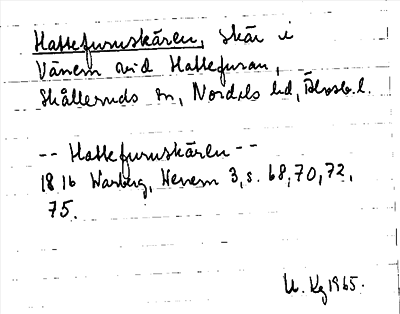 Hattefuruskären, skär i
Vänern vid Hattefuran,
Skålleruds sn, Nordals hd, Älvsb. l.
-- Hattefuruskären --
1816 Warberg, Wenern 3, s. 68, 70, 72,
75.
U. Kg 1965.